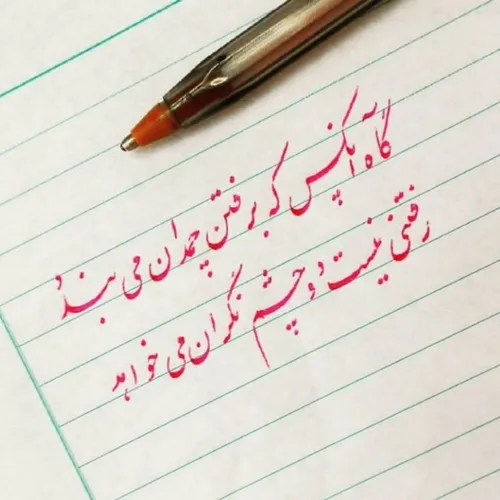 گاه آنکس که برفتن چمدان می بندد
رفتنی نیست دو چشم نگران می خواهد